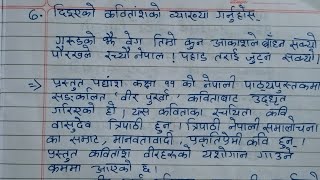 ६. दिइएको कवितांशको व्याख्या गर्नुहोस् ।
गरुडको झैं वेग तिम्रो कुन आकाशले बाँध्न सक्यो
पौरखले रच्यौ नेपाल ! पहाड तराई जुट्न सक्यो।
> प्रस्तुत पद्यांश कक्षा ११ को नेपाली पाठ्यपुस्तकमा
सङकलित 'वीर पुर्खा' कविताबाट उद्धृत
गरिएको हो । यस कविताका रचयिता कवि
वासुदेव त्रिपाठी हुन् । त्रिपाठी नेपाली समालोचना
का सम्राट, मानवतावादी , प्रकृतिप्रेमी कवि हुन् ।
प्रस्तुत कवितांश वीरहरूको यशोगान गाउने
क्रममा आएको छ ।